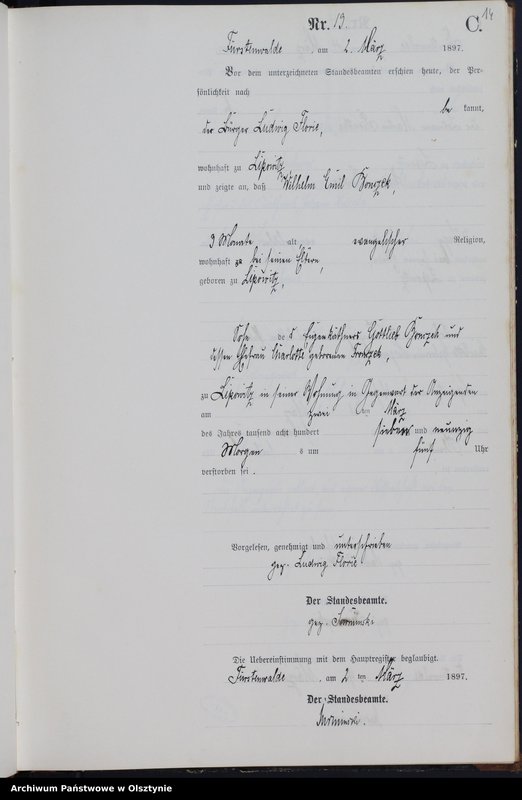 14
Nr. 13. C.
Fürstenwalde am 2. März 1897.
Vor dem unterzeichneten Standesbeamten erschien heute, der Per-
sönlichkeit nach
be kannt,
der Bürger Ludwig Floric,
wohnhaft zu
und zeigte an, daß Wilhelm Emil
3 Monate alt, evangelischer Religion,
wohnhaft zu bei seinen Eltern,
geboren zu
Sohn de s Eigenkäthners Gottlieb und
dessen Ehefrau Charlotte geborenen
zu in seiner Wohnung in Gegenwart des Anzeigenden
am zwei ten März
des Jahres tausend acht hundert sieben und neunzig
Morgen s um fünf Uhr
verstorben sei.
Vorgelesen, genehmigt und unterschrieben
gez. Ludwig Floric
Der Standesbeamte.
gez.
Die Uebereinstimmung mit dem Hauptregister beglaubigt.
Fürstenwalde, am 2 ten März 1897.
Der Standesbeamte.
Archiwum Państwowe w Olsztynie